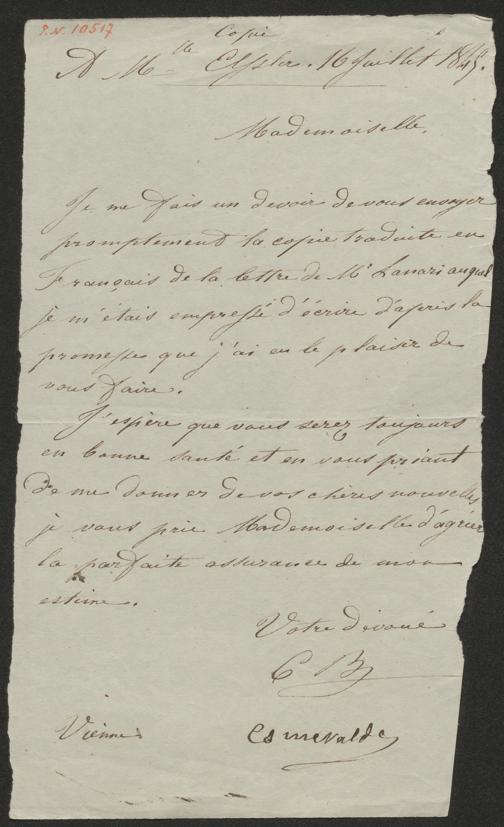 P.N. 10517
Copie
A Mlle Elssler. 16 Juillet 1845.
Mademoiselle,
Je me fais un devoir de vous envoyer
promptement la copie traduite en
Français de la lettre de Mr Lanari auquel
je m'étais empressé d'écrire d'après la
promesse que j'ai eu le plaisir de
vous faire.
J'espère que vous serez toujours
en bonne santé et en vous priant
de me donner de vos chères nouvelles
je vous prie Mademoiselle d'agréer
la parfaite assurance de mon
estime.
Votre dévoué
C B
Vienne
Esmeralda